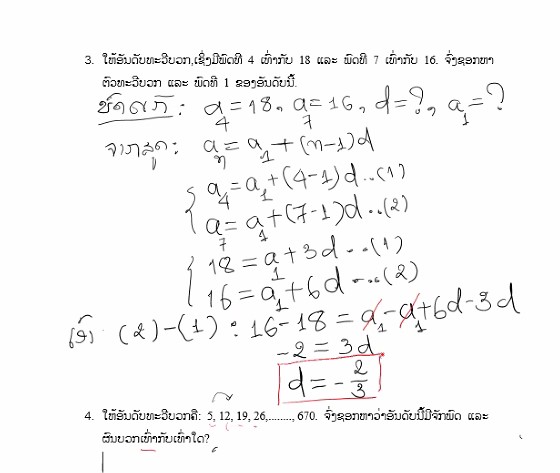 3. ໃຫ້ອັນດັບທະວີບວກ,ເຊິ່ງມີພົດທີ 4 ເທົ່າກັບ 18 ແລະ ພົດທີ 7 ເທົ່າກັບ 16. ຈົ່ງຊອກຫາ
ຕົວທະວີບວກ ແລະ ພົດທີ 1 ຂອງອັນດັບນີ້.
a₄=18, a₇=16, d=?, a₁=?
ຈາກສູດ: aₙ=a₁+(n-1)d
a₄=a₁+(4-1)d..(1)
a₇=a₁+(7-1)d..(2)
18=a₁+3d...(1)
16=a₁+6d...(2)
(2)-(1): 16-18=a₁-a₁+6d-3d
-2=3d
d=-2/3
4. ໃຫ້ອັນດັບທະວີບວກຄື: 5, 12, 19, 26,........, 670. ຈົ່ງຊອກຫາວ່າອັນດັບນີ້ມີຈັກພົດ ແລະ
ຜົນບວກເທົ່າກັບເທົ່າໃດ?